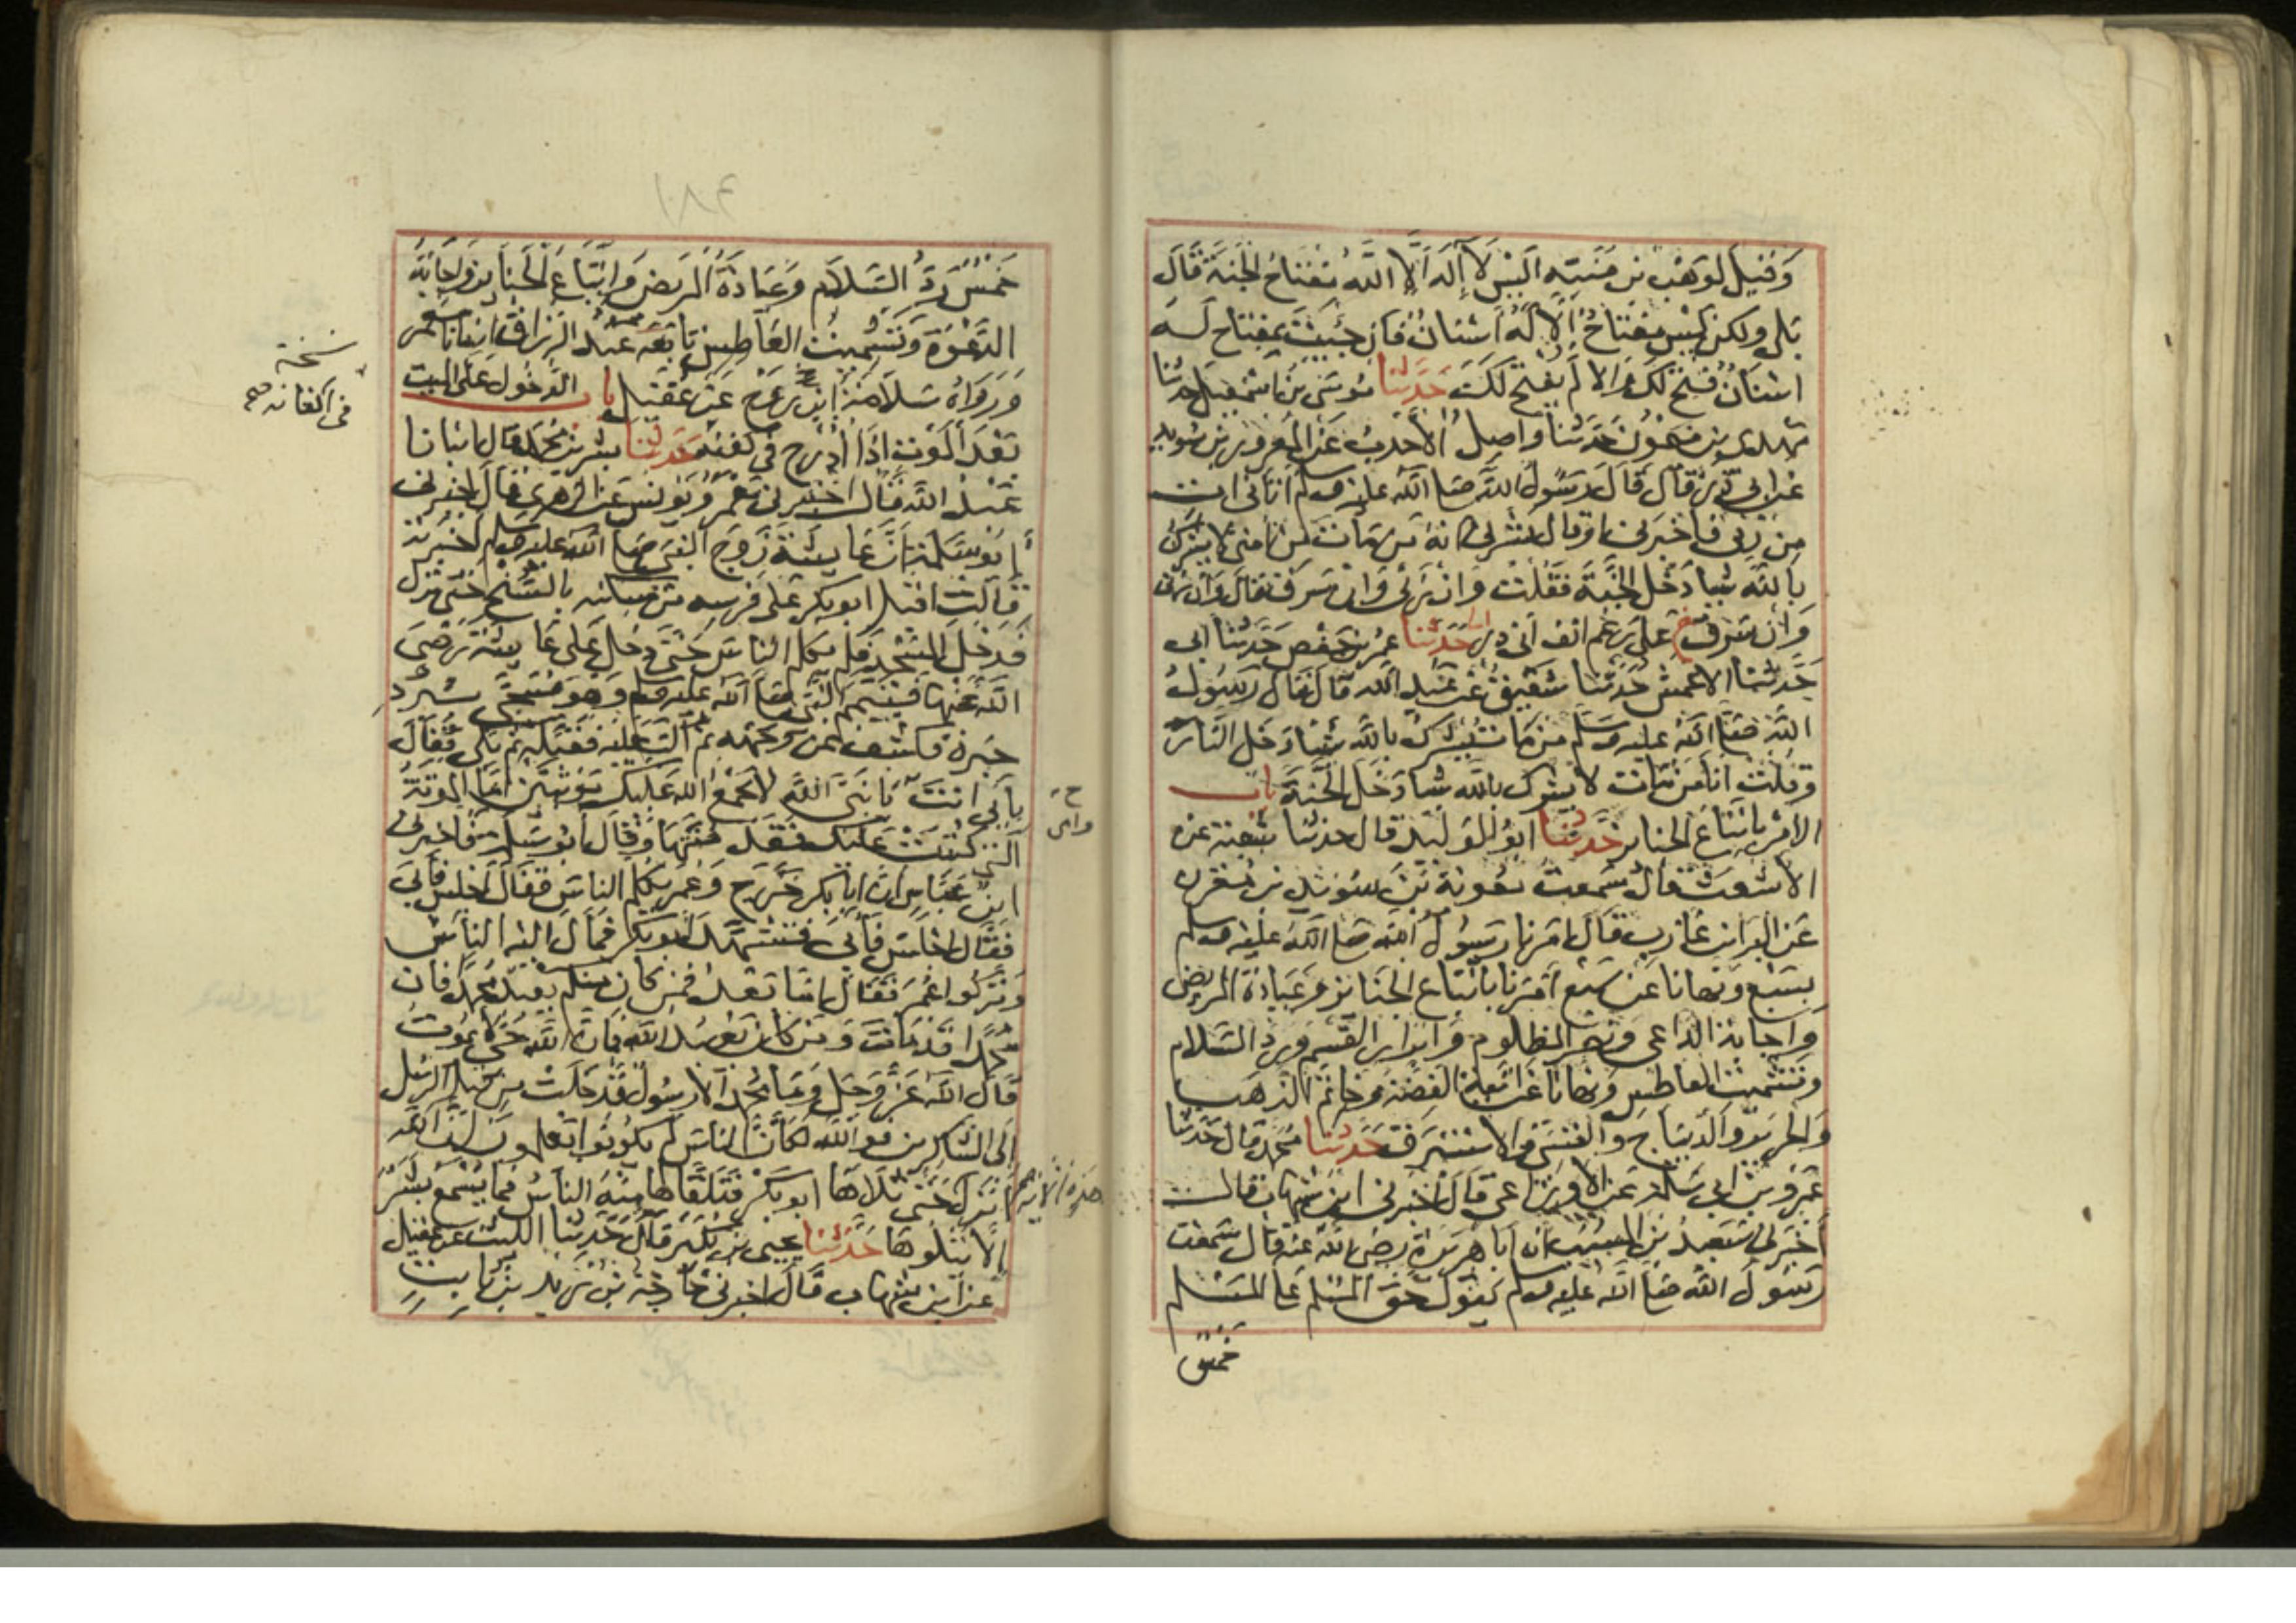 وقيل لوهب بن منبه اليس لا اله الا الله مفتاح الجنة قال
بلى ولكن ليس مفتاح الا له اسنان فان جئت بمفتاح له
اسنان فتح لك والا لم يفتح لك حدثنا موسى بن اسمعيل حدثنا
مهدي بن ميمون حدثنا واصل الاحدب عن المعرور بن سويد
عن ابي ذر قال قال رسول الله صلى الله عليه وسلم اتاني ات
من ربي فاخبرني او قال بشرني انه من مات من امتي لا يشرك
بالله شيا دخل الجنة فقلت وان زنى وان سرق فقال وان زنى
وان سرق على رغم انف ابي ذر حدثنا عمر بن حفص حدثنا ابى
حدثنا الاعمش حدثنا شقيق عن عبد الله قال قال رسول
الله صلى الله عليه وسلم من مات يشرك بالله شيا دخل النار
وقلت انا من مات لا يشرك بالله شيا دخل الجنة باب
الامر باتباع الجنايز حدثنا ابو الوليد قال حدثنا شعبة عن
الاشعث قال سمعت معوية بن سويد بن مقرن
عن البراء بن عازب قال امرنا رسول الله صلى الله عليه وسلم
بسبع ونهانا عن سبع امرنا باتباع الجنايز وعيادة المريض
واجابة الداعي ونصر المظلوم وابرار القسم ورد السلام
وتشميت العاطس ونهانا عن انية الفضة وخاتم الذهب
والحرير والديباج والقسي والاستبرق حدثنا محمد قال حدثنا
عمرو بن ابي سلمة عن الاوزاعي قال اخبرني ابن شهاب قال
اخبرني سعيد بن المسيب ان ابا هريرة رضي الله عنه قال سمعت
رسول الله صلى الله عليه وسلم يقول حق المسلم على المسلم
خمس
خمس رد السلام وعيادة المريض واتباع الجنايز واجابة
الدعوة وتشميت العاطس تابعه عبد الرزاق انبانا معمر
ورواه سلامة ابن روح عن عقيل باب الدخول على الميت
بعد الموت اذا ادرج في كفنه حدثنا بشر بن محمد قال انبانا
عبد الله قال اخبرني معمر ويونس عن الزهري قال اخبرني
ابو سلمة ان عايشة زوج النبي صلى الله عليه وسلم اخبرته
قالت اقبل ابو بكر على فرسه من مسكنه بالسنح حتى نزل
فدخل المسجد فلم يكلم الناس حتى دخل على عايشة رضي
الله عنها فتيمم النبي صلى الله عليه وسلم وهو مسجى ببرد
حبرة فكشف عن وجهه ثم اكب عليه فقبله ثم بكى فقال
بابي انت يا نبي الله لا يجمع الله عليك موتتين اما الموتة
التي كتبت عليك فقد متها وقال ابو سلمة فاخبرني
ابن عباس ان ابا بكر خرج وعمر يكلم الناس فقال اجلس فابى
فقال اجلس فابى فتشهد ابو بكر فمال اليه الناس
وتركوا عمر فقال اما بعد فمن كان منكم يعبد محمدا فان
محمدا قد مات ومن كان يعبد الله فان الله حي لا يموت
قال الله عز وجل وما محمد الا رسول قد خلت من قبله الرسل
الى الشاكرين فوالله لكان الناس لم يكونوا يعلمون ان الله
انزل حتى تلاها ابو بكر فتلقاها منه الناس فما يسمع بشر
الا يتلوها حدثنا يحيى بن بكير قال حدثنا الليث عن عقيل
عن ابن شهاب قال اخبرني خارجة بن زيد بن ثابت
نسخة
في اكفانه
هذه الاية